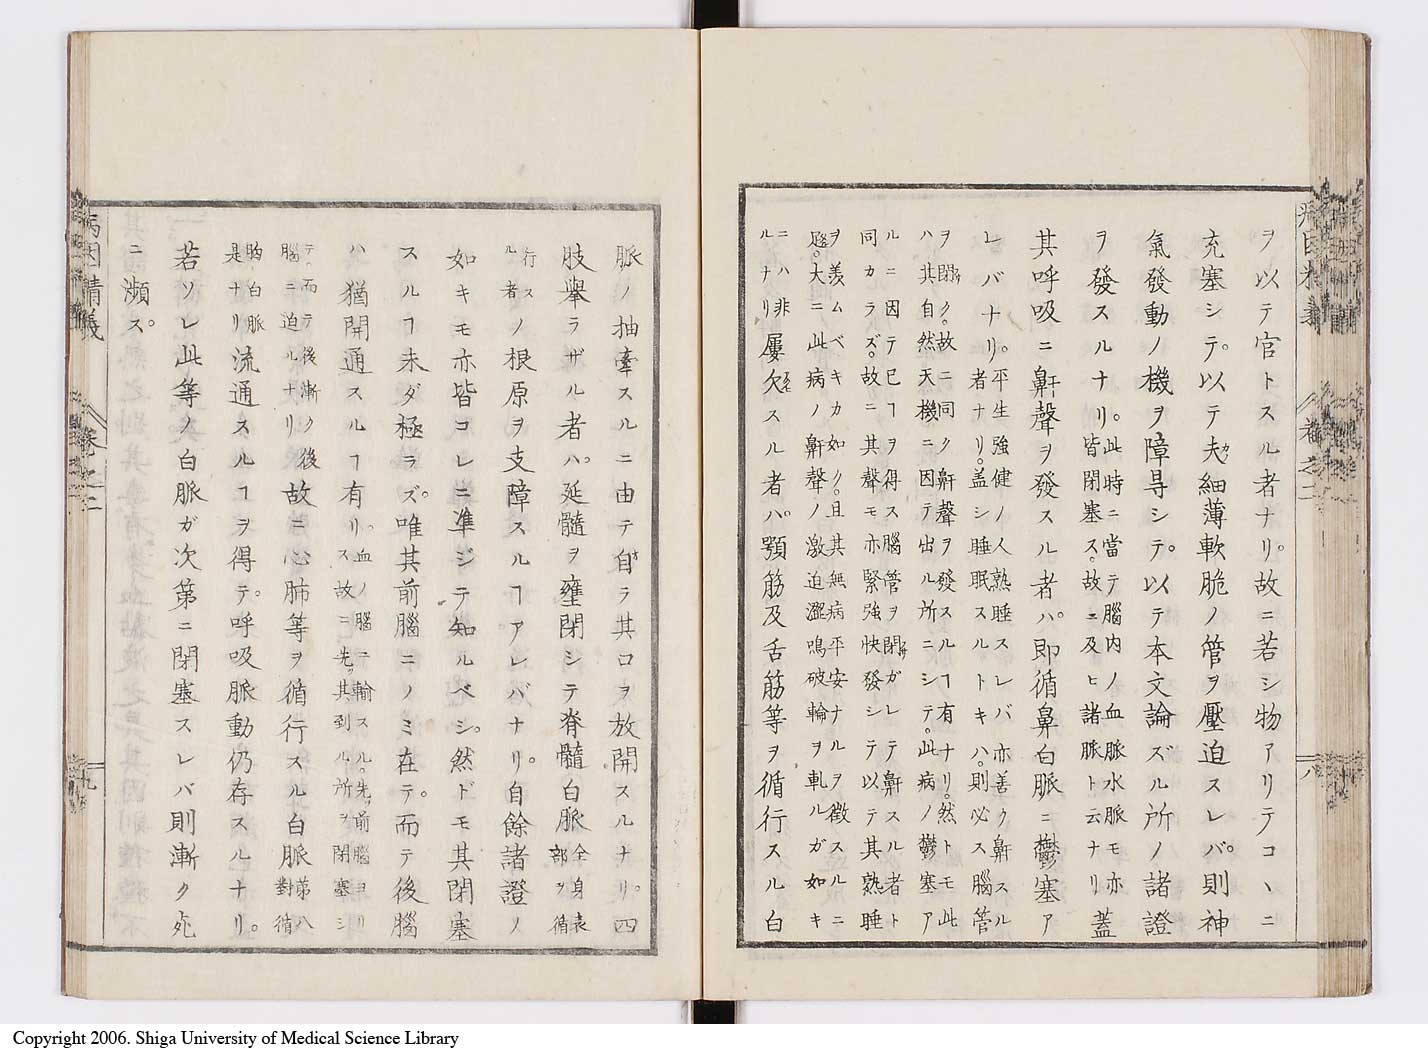 ヲ以テ官トスル者ナリ。故ニ若シ物アリテコヽニ
充塞シテ。以テ夫ノ細薄軟脆ノ管ヲ壓迫スレバ。則神
氣發動ノ機ヲ障㝵シテ。以テ本文論ズル所ノ諸證
ヲ發スルナリ。此時ニ當テ腦内ノ血脈水脈モ亦皆閉塞ス。故ニ及ヒ諸脈ト云ナリ蓋
其呼吸ニ鼾聲ヲ發スル者ハ。即循鼻白脈ニ鬱塞ア
レバナリ。平生強健ノ人熟睡スレバ亦善ク鼾スル者ナリ。蓋シ睡眠スルトキハ。則必ス腦管
ヲ閉ク。故ニ同ク鼾聲ヲ發スルヿ有ナリ。然トモ此
ハ其自然天機ニ因テ出ル所ニシテ。此病ノ鬱塞ア
ルニ因テ已ヿヲ得ス腦管ヲ閉ガレテ鼾スル者ト
同カラズ。故ニ其聲モ亦緊強快發シテ以テ其熟睡
ヲ羨ムベキカ如ク。且其無病平安ナルヲ徴スルニ
大ニ此病ノ鼾聲ノ激迫澀鳴破輪ヲ軋ルガ如キ
ニハ非ルナリ屢欠スル者ハ。顎筋及舌筋等ヲ循行スル白
卷之二
八
脈ノ抽牽スルニ由テ自ラ其口ヲ放開スルナリ。四
肢擧ラザル者ハ。延髓ヲ壅閉シテ脊髓白脈全身表部ヲ循
行スル者ノ根原ヲ支障スルヿアレバナリ。自餘諸證ノ
如キモ亦皆コレニ準ジテ知ルベシ。然ドモ其閉塞
スルヿ未ダ極ラズ。唯其前腦ニノミ在テ。而テ後腦
ハ猶開通スルヿ有リ。血ノ腦ニ輸スル。先前腦ヨリス故ニ先其到ル所ヲ閉塞シ
テ而テ後漸ク後腦ニ迫ルナリ故ニ心肺等ヲ循行スル白脈第八對循
胸白脈是ナリ流通スルヿヲ得テ。呼吸脈動仍存スルナリ。
若ソレ此等ノ白脈ガ次第ニ閉塞スレバ則漸ク死
ニ瀕ス。
病因精義
卷之二
九
Copyright 2006. Shiga University of Medical Science Library